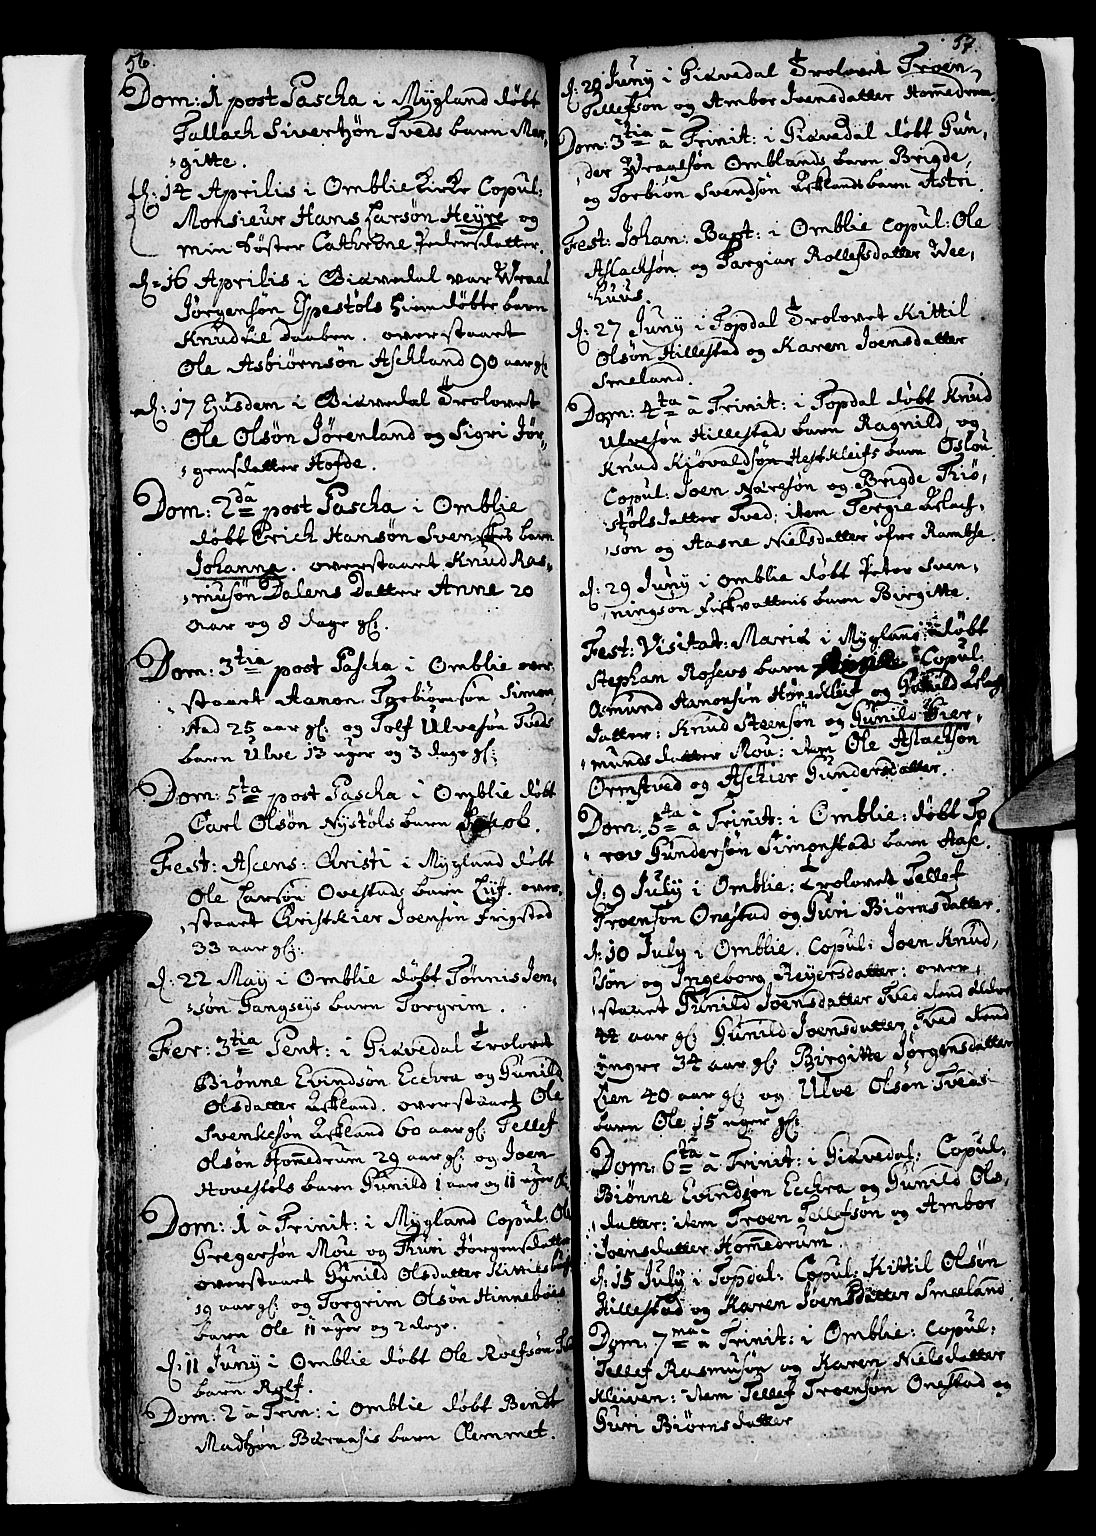 56.
Dom: 1 post Pascha i Mygland døbt
Tallach Sivertzøn Tveds barn Mar-
gitte.
d: 14 Aprilis i Omblie Kirke Copul:
Monsieur Hans Larsøn Heyre og
min Søster Cathrine Pedersdatter.
d: 16 Aprilis i Giøvedal var Wraal
Jørgensøn Espestøls hiemdøbte barn
Knud til daaben. overstaaet
Ole Asbiørnsøn Aschland 90 aar gl:
d: 17 Ejusdem i Giøvedal Trolovet
Ole Olsøn Jørenland og Sigri Jør-
gensdatter Hofde.
Dom: 2da post Pascha i Omblie
døbt Erich Hansøn Svenches barn
Johanne. overstaaet Knud Ras-
musøn Dalens Datter Anne 20
aar og 8 dage gl:
Dom: 3tia post Pascha i Omblie over-
staaet Aanon Torbiørnsøn Simon-
stad 25 aar gl: og Tolf Ulvesøn Tveds
barn Ulve 13 uger og 3 dage gl:
Dom: 5ta post Pascha i Omblie døbt
Carl Olsøn Nystøls barn Jakob.
Fest: Ascens: Christi i Mygland døbt
Ole Larsøn Ovestads barn Liif. over-
staaet Christ Joensøn Frigstad
33 aar gl:
d: 22 May i Omblie døbt Tønnis Jen-
søn Gangseys barn Torgrim.
Fer: 3tia Pent: i Giøvedal Trolovet
Biønne Evindsøn Ecckra og Gunild
Olsdatter Askland. overstaaet Ole
Svenkesøn Askland 60 aar gl: Tellef
Olsøn Hommedrum 29 aar gl: og Joen
Hovestøls barn Gunild 1 aar og 11 uger gl:
Dom: 1 à Trinit: i Mygland Copul: Ole
Gregersøn Mou og Turi Jørgensdatter
overstaaet Gunild Olsdatter Kittils
19 aar gl: og Torgrim Olsøn Hinnebøes
barn Ole 11 uger og 2 dage.
d: 11 Juny i Omblie døbt Ole Rolfsøn
barn Rolf.
Dom: 2 à Trin: i Omblie døbt Bendt
Madtzøn barn Clemmet.
57.
d: 20 Juny i Giøvedal Trolovet Troen
Tellefsøn og Ambor Joensdatter Hommedrum.
Dom: 3tia à Trinit: i Giøvedal døbt Gun-
der Wraalsøn Omblands barn Brigde,
og Torbiøn Svendsøn Asklands barn Astri.
Fest: Johan: Bapt: i Omblie Copul: Ole
Aslachsøn og Targier Rollefsdatter Wee-
huus.
d: 27 Juny i Topdal Trolovet Kittil
Olsøn Hillestad og Karen Joensdatter
Smeland.
Dom: 4ta à Trinit: i Topdal døbt Knud
Ulvesøn Hillestad barn Ragnild, og
Knud Kiøvaldsøn Hestkleifs barn Oslou
Copul: Joen Naresøn og Brigde Kiø-
støls datter Tved; item Tergie Aslach-
søn og Aasne Nielsdatter øfre Ramse.
d: 29 Juny i Omblie døbt Peter Sven-
ningsøn Fiskvattens barn Birgitte.
Fest: Visitat: Mariæ i Mygland døbt
Stephan Rosevs barn Copul:
Osmund Aamonsøn Høneklif og Gunild Aslachs
datter: Knud Steensøn og Gunild Gier-
munds datter Mou: item Ole Aslachsøn
Ormstved og Aschier Gundersdatter.
Dom: 5ta à Trinit: i Omblie: døbt To-
rov Gundersøn Simonstads barn Aase.
d: 9 July i Omblie: Trolovet Tellef
Troensøn Onestad og Guri Biørnsdatter.
d: 10 July i Omblie. Copul: Joen Knud-
søn og Ingeborg Reyersdatter: over-
staaet Gunild Joensdatter Tved den eldre
44 aar gl: Gunild Joensdatter Tved den
yngre 34 aar gl: Birgitte Jørgensdatter
Lien 40 aar gl: og Ulve Olsøn Tveds
barn Ole 15 uger gl:
Dom: 6ta à Trinit: i Giøvedal: Copul:
Biønne Evindsøn Ecckra og Gunild Ols-
datter: item Troen Tellefsøn og Ambor
Joensdatter Hommedrum.
d: 15 July i Topdal: Copul: Kittil Olsøn
Hillestad og Karen Joensdatter Smeeland.
Dom: 7ma à Trinit: i Omblie: Copul:
Tellef Rasmusøn og Karen Nielsdatter
Kleiven: item Tellef Troensøn Onestad og
Guri Biørnsdatter